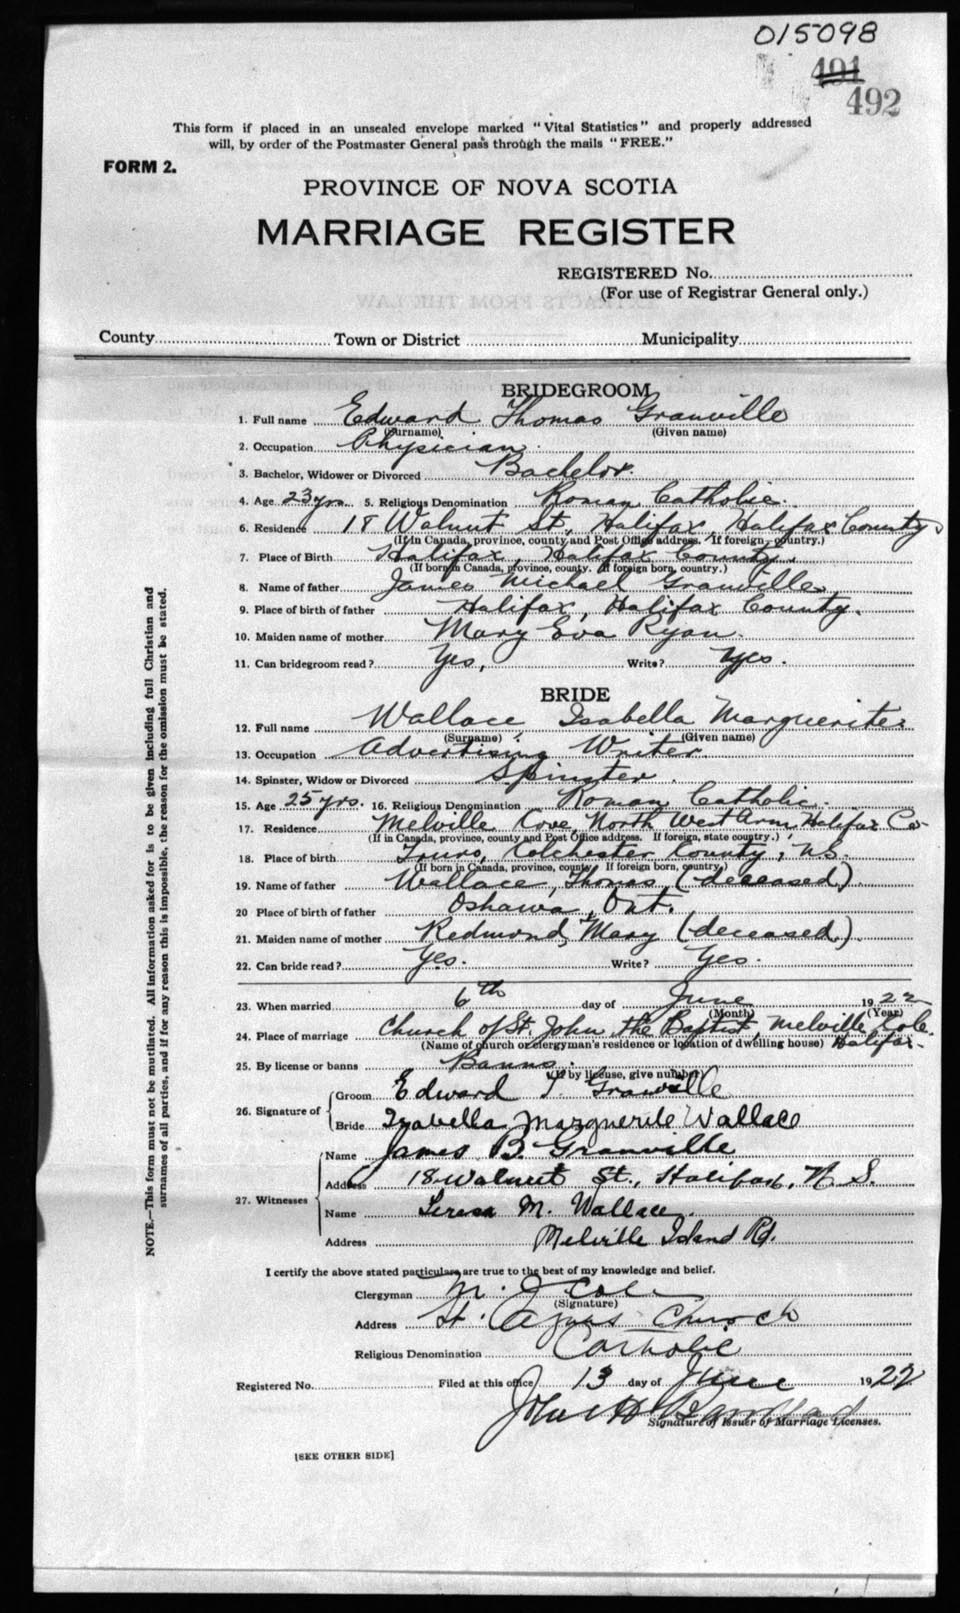 015098
491
492
This form if placed in an unsealed envelope marked "Vital Statistics" and properly addressed
will, by order of the Postmaster General pass through the mails "FREE."
FORM 2.
PROVINCE OF NOVA SCOTIA
MARRIAGE REGISTER
REGISTERED No.
(For use of Registrar General only.)
County Town or District Municipality
BRIDEGROOM
1. Full name Edward Thomas Granville
(Surname) (Given name)
2. Occupation Physician.
3. Bachelor, Widower or Divorced Bachelor.
4. Age 23 yrs. 5. Religious Denomination Roman Catholic.
6. Residence 18 Walnut St., Halifax, Halifax County.
(If in Canada, province, county and Post Office address. If foreign, country.)
7. Place of Birth Halifax, Halifax County.
(If born in Canada, province, county. If foreign born, country.)
8. Name of father James Michael Granville.
9. Place of birth of father Halifax, Halifax County.
10. Maiden name of mother Mary Eva Ryan.
11. Can bridegroom read? Yes, Write? Yes.
BRIDE
12. Full name Wallace Isabella Marguerite
(Surname) (Given name)
13. Occupation Advertising Writer
14. Spinster, Widow or Divorced Spinster.
15. Age 25 yrs. 16. Religious Denomination Roman Catholic.
17. Residence Melville Cove, North West Arm, Halifax Co
(If in Canada, province, county and Post Office address. If foreign, state country.)
18. Place of birth Truro, Colchester County, N.S.
(If born in Canada, province, county. If foreign born, country.)
19. Name of father Wallace, Thomas, (deceased.)
20 Place of birth of father Oshawa, Ont.
21. Maiden name of mother Redmond, Mary (deceased.)
22. Can bride read? Yes. Write? Yes.
23. When married 6th day of June 1922
(Month) (Year)
24. Place of marriage Church of St. John the Baptist, Melville Cove.
(Name of church or clergyman's residence or location of dwelling house) Halifax.
25. By license or banns Banns.
(If by license, give number)
26. Signature of
Groom Edward T. Granville
Bride Isabella Marguerite Wallace
27. Witnesses
Name James B. Granville
Address 18 Walnut St., Halifax, N.S.
Name Teresa M. Wallace.
Address Melville Island Rd.
I certify the above stated particulars are true to the best of my knowledge and belief.
Clergyman M. J.
(Signature)
Address St. Agnes Church
Religious Denomination Catholic
Registered No. Filed at this office 13 day of June 1922
John H.
Signature of Issuer of Marriage Licenses.
[SEE OTHER SIDE]
NOTE.—This form must not be mutilated. All information asked for is to be given including full Christian and
surnames of all parties, and if for any reason this is impossible, the reason for the omission must be stated.